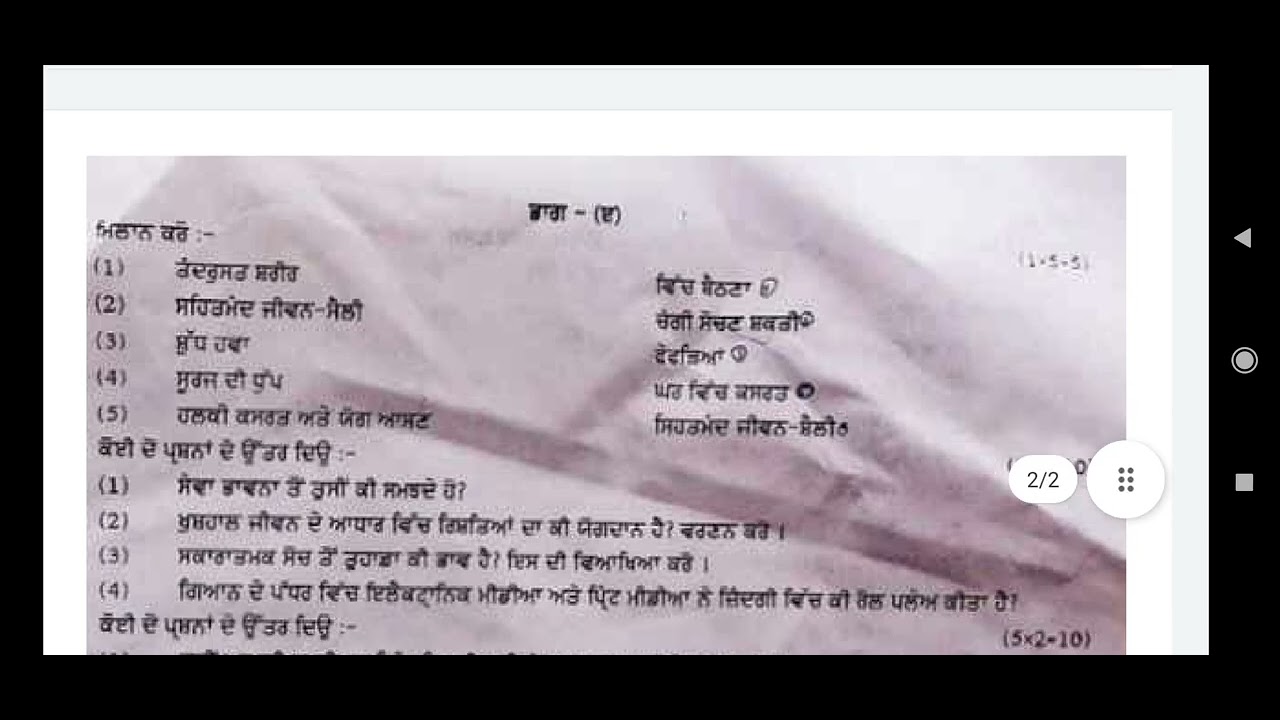 ਭਾਗ - (ੲ)
ਮਿਲਾਨ ਕਰੋ :-
(1×5=5)
(1) ਤੰਦਰੁਸਤ ਸ਼ਰੀਰ
ਵਿੱਚ ਬੈਠਣਾ
(2) ਸਹਿਤਮੰਦ ਜੀਵਨ-ਸੈਲੀ
ਚੰਗੀ ਸੋਚਣ ਸ਼ਕਤੀ
(3) ਸ਼ੁੱਧ ਹਵਾ
ਫੇਫੜਿਆਂ
(4) ਸੂਰਜ ਦੀ ਧੁੱਪ
ਘਰ ਵਿੱਚ ਕਸਰਤ
(5) ਹਲਕੀ ਕਸਰਤ ਅਤੇ ਯੋਗ ਆਸਣ
ਸਿਹਤਮੰਦ ਜੀਵਨ-ਸ਼ੈਲੀ
ਕੋਈ ਦੋ ਪ੍ਰਸ਼ਨਾਂ ਦੇ ਉੱਤਰ ਦਿਉ :-
2/2
(1) ਸੇਵਾ ਭਾਵਨਾ ਤੋਂ ਤੁਸੀਂ ਕੀ ਸਮਝਦੇ ਹੋ?
(2) ਖੁਸ਼ਹਾਲ ਜੀਵਨ ਦੇ ਆਧਾਰ ਵਿੱਚ ਰਿਸ਼ਤਿਆਂ ਦਾ ਕੀ ਯੋਗਦਾਨ ਹੈ? ਵਰਣਨ ਕਰੋ ।
(3) ਸਕਾਰਾਤਮਕ ਸੋਚ ਤੋਂ ਤੁਹਾਡਾ ਕੀ ਭਾਵ ਹੈ? ਇਸ ਦੀ ਵਿਆਖਿਆ ਕਰੋ ।
(4) ਗਿਆਨ ਦੇ ਪੱਧਰ ਵਿੱਚ ਇਲੈਕਟ੍ਰਾਨਿਕ ਮੀਡੀਆ ਅਤੇ ਪ੍ਰਿੰਟ ਮੀਡੀਆ ਨੇ ਜ਼ਿੰਦਗੀ ਵਿੱਚ ਕੀ ਰੋਲ ਪਲੇਅ ਕੀਤਾ ਹੈ?
ਕੋਈ ਦੋ ਪ੍ਰਸ਼ਨਾਂ ਦੇ ਉੱਤਰ ਦਿਉ :-
(5×2=10)